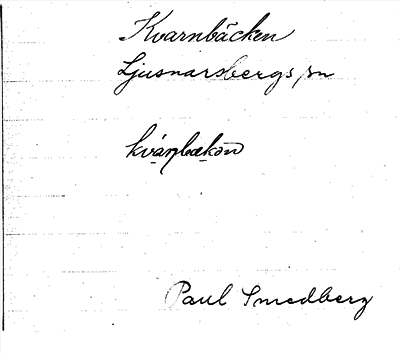 Kvarnbäcken
Ljusnarsbergs sn
kváɳbækən
Paul Smedberg